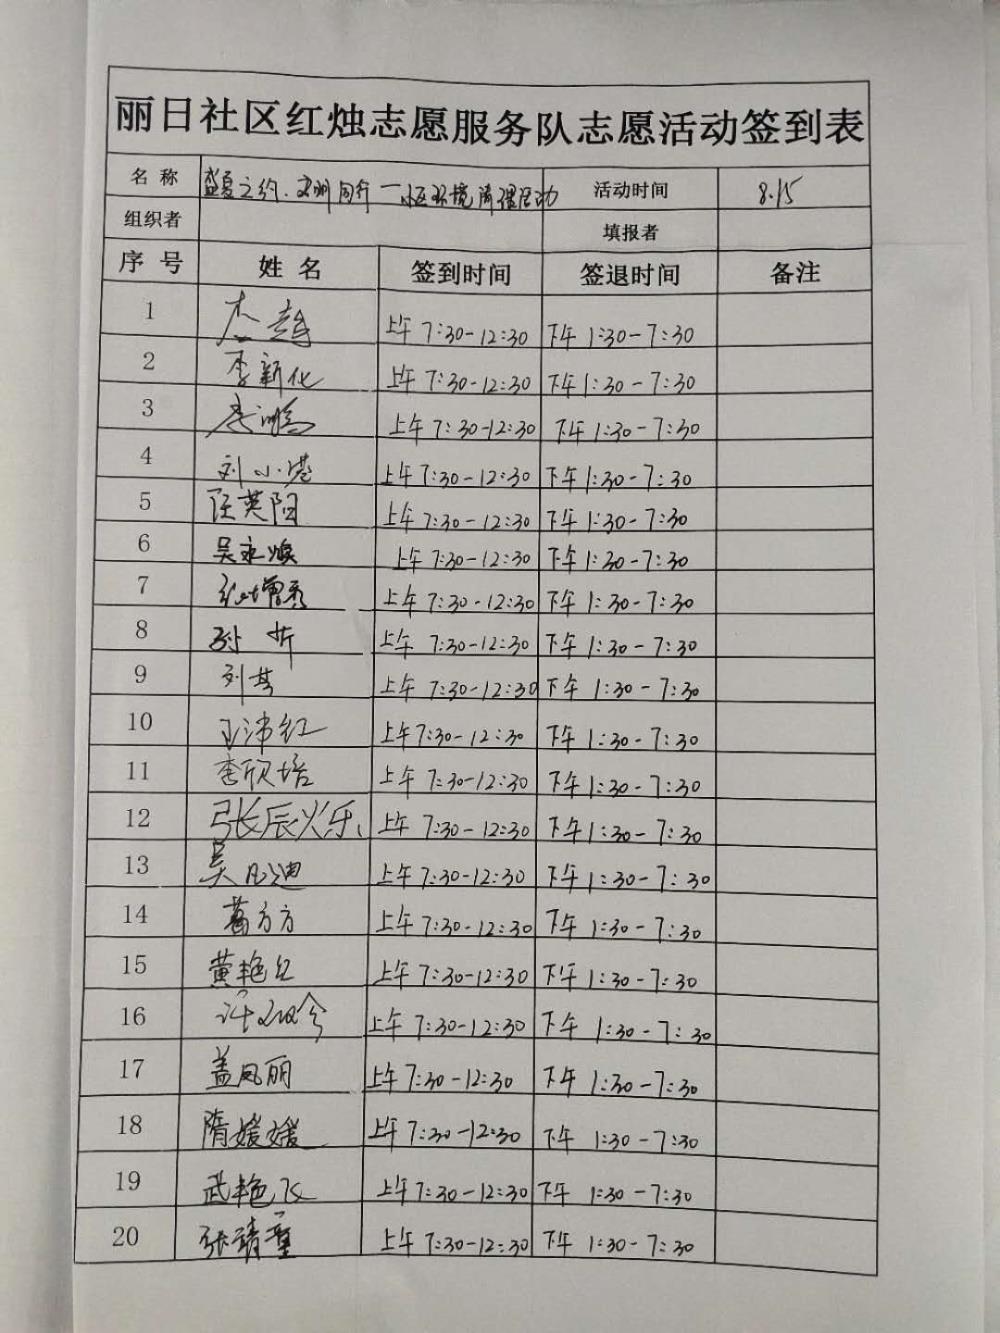 丽日社区红烛志愿服务队志愿活动签到表
名称 盛夏之约.文明同行—小区环境清理活动 活动时间 8.15
组织者 填报者
序号 姓名 签到时间 签退时间 备注
1 上午 7:30-12:30 下午 1:30-7:30
2 李新化 上午 7:30-12:30 下午 1:30-7:30
3 上午 7:30-12:30 下午 1:30-7:30
4 刘小港 上午 7:30-12:30 下午 1:30-7:30
5 英阳 上午 7:30-12:30 下午 1:30-7:30
6 吴永焕 上午 7:30-12:30 下午 1:30-7:30
7 上午 7:30-12:30 下午 1:30-7:30
8 上午 7:30-12:30 下午 1:30-7:30
9 上午 7:30-12:30 下午 1:30-7:30
10 王沛红 上午 7:30-12:30 下午 1:30-7:30
11 李欣培 上午 7:30-12:30 下午 1:30-7:30
12 张辰火乐 上午 7:30-12:30 下午 1:30-7:30
13 上午 7:30-12:30 下午 1:30-7:30
14 葛方方 上午 7:30-12:30 下午 1:30-7:30
15 黄艳红 上午 7:30-12:30 下午 1:30-7:30
16 上午 7:30-12:30 下午 1:30-7:30
17 盖凤丽 上午 7:30-12:30 下午 1:30-7:30
18 隋媛媛 上午 7:30-12:30 下午 1:30-7:30
19 武艳飞 上午 7:30-12:30 下午 1:30-7:30
20 上午 7:30-12:30 下午 1:30-7:30